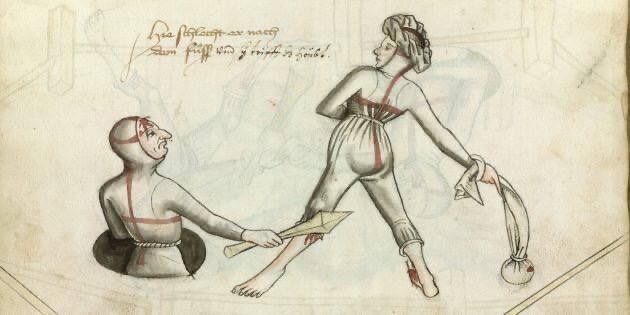 Hie schlecht er nach
dem fuss vnd trifft dz höubt.